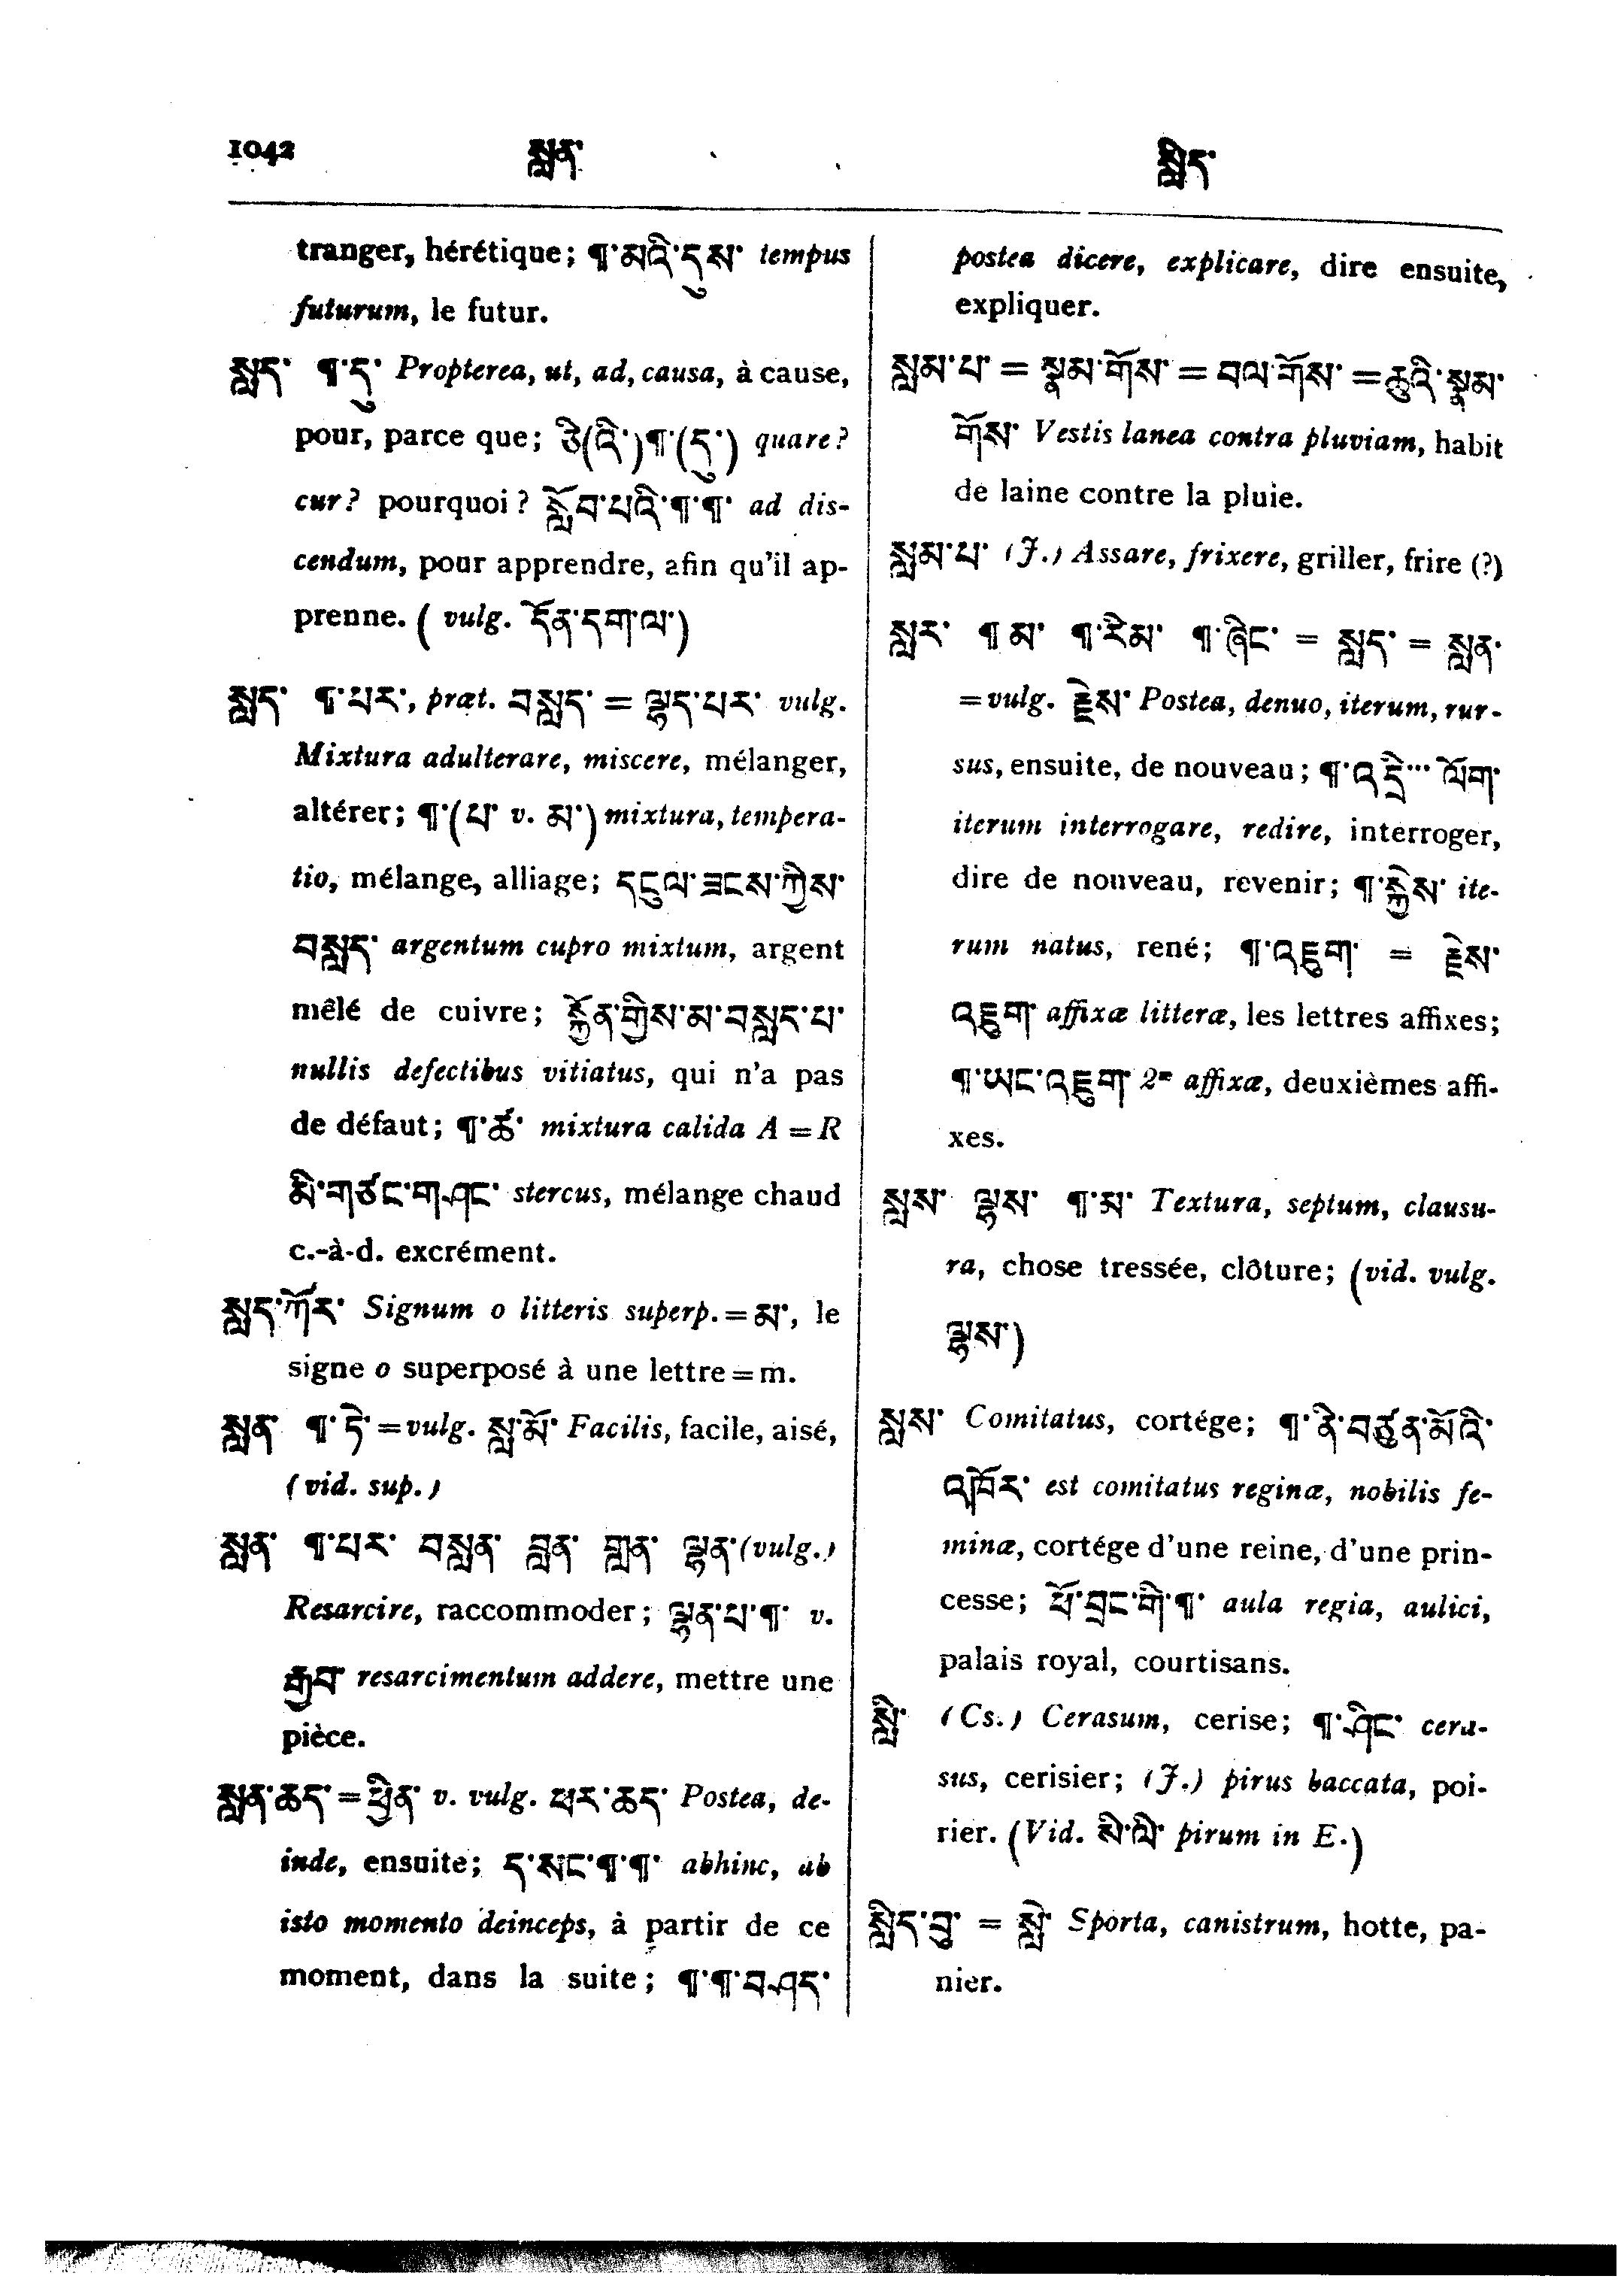 1042 སླན་ སླིད་
tranger, hérétique; ¶་མའི་དུས་ tempus
futurum, le futur.
སླད་ ¶་དུ་ Propterea, ut, ad, causa, à cause,
pour, parce que; ཅི(འི་)¶་(དུ་) quare?
cur? pourquoi? སློབ་པའི་¶་¶་ ad dis-
cendum, pour apprendre, afin qu'il ap-
prenne. (vulg. དོན་དག་ལ་)
སླད་ ¶་པར་, præt. བསླད་ = ལྷད་པར་ vulg.
Mixtura adulterare, miscere, mélanger,
altérer; ¶་(པ་ v. མ་) mixtura, tempera-
tio, mélange, alliage; དངུལ་ཟངས་ཀྱིས་
བསླད་ argentum cupro mixtum, argent
mêlé de cuivre; སྐྱོན་གྱིས་མ་བསླད་པ་
nullis defectibus vitiatus, qui n'a pas
de défaut; ¶་ཚ་ mixtura calida A = R
མི་གཙང་གཤང་ stercus, mélange chaud
c.-à-d. excrément.
སླད་ཀོར་ Signum o litteris superp. = མ་, le
signe o superposé à une lettre = m.
སླན་ ¶་ཏེ་ = vulg. སླ་མོ་ Facilis, facile, aisé,
(vid. sup.)
སླན་ ¶་པར་ བསླན་ བླན་ གླན་ ལྷན་ (vulg.)
Resarcire, raccommoder; ལྷན་པ་¶་ v.
རྒྱབ་ resarcimentum addere, mettre une
pièce.
སླན་ཆད་ = ཕྱིན་ v. vulg. ཕར་ཆད་ Postea, de-
inde, ensuite; ད་སང་¶་¶་ abhinc, ab
isto momento deinceps, à partir de ce
moment, dans la suite; ¶་¶་བཤད་
postea dicere, explicare, dire ensuite,
expliquer.
སླམ་པ་ = སྣམ་གོས་ = བལ་གོས་ = ཆུའི་སྣམ་
གོས་ Vestis lanea contra pluviam, habit
de laine contre la pluie.
སླམ་པ་ (J.) Assare, frixere, griller, frire (?)
སླར་ ¶ མ་ ¶་རིམ་ ¶་ཞིང་ = སླད་ = སླན་
= vulg. རྗེས་ Postea, denuo, iterum, rur-
sus, ensuite, de nouveau; ¶་འདྲི་... ལོག་
iterum interrogare, redire, interroger,
dire de nouveau, revenir; ¶་སྐྱེས་ ite-
rum natus, rené; ¶་འཇུག་ = རྗེས་
འཇུག་ affixæ litteræ, les lettres affixes;
¶་ཡང་འཇུག་ 2æ affixæ, deuxièmes affi-
xes.
སླས་ ལྷས་ ¶་མ་ Textura, septum, clausu-
ra, chose tressée, clôture; (vid. vulg.
ལྷས་)
སླས་ Comitatus, cortége; ¶་ནི་བཙུན་མོའི་
འཁོར་ est comitatus reginæ, nobilis fe-
minæ, cortége d'une reine, d'une prin-
cesse; ཕོ་བྲང་གི་¶་ aula regia, aulici,
palais royal, courtisans.
སླི་ (Cs.) Cerasum, cerise; ¶་ཤིང་ cera-
sus, cerisier; (J.) pirus baccata, poi-
rier. (Vid. སི་ལི་ pirum in E.)
སླིད་བུ་ = སླེ་ Sporta, canistrum, hotte, pa-
nier.